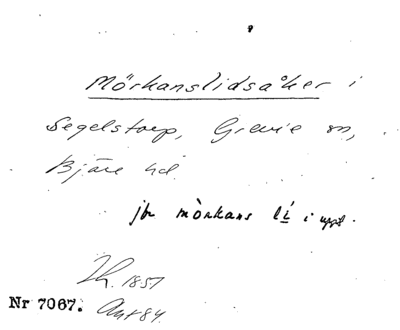 Mörkanslidsåker i
Segelstorp, Grevie sn,
Bjäre hd.
jfr mòrkans lí i uppt.
1857
Nr 7067. Ant 84.